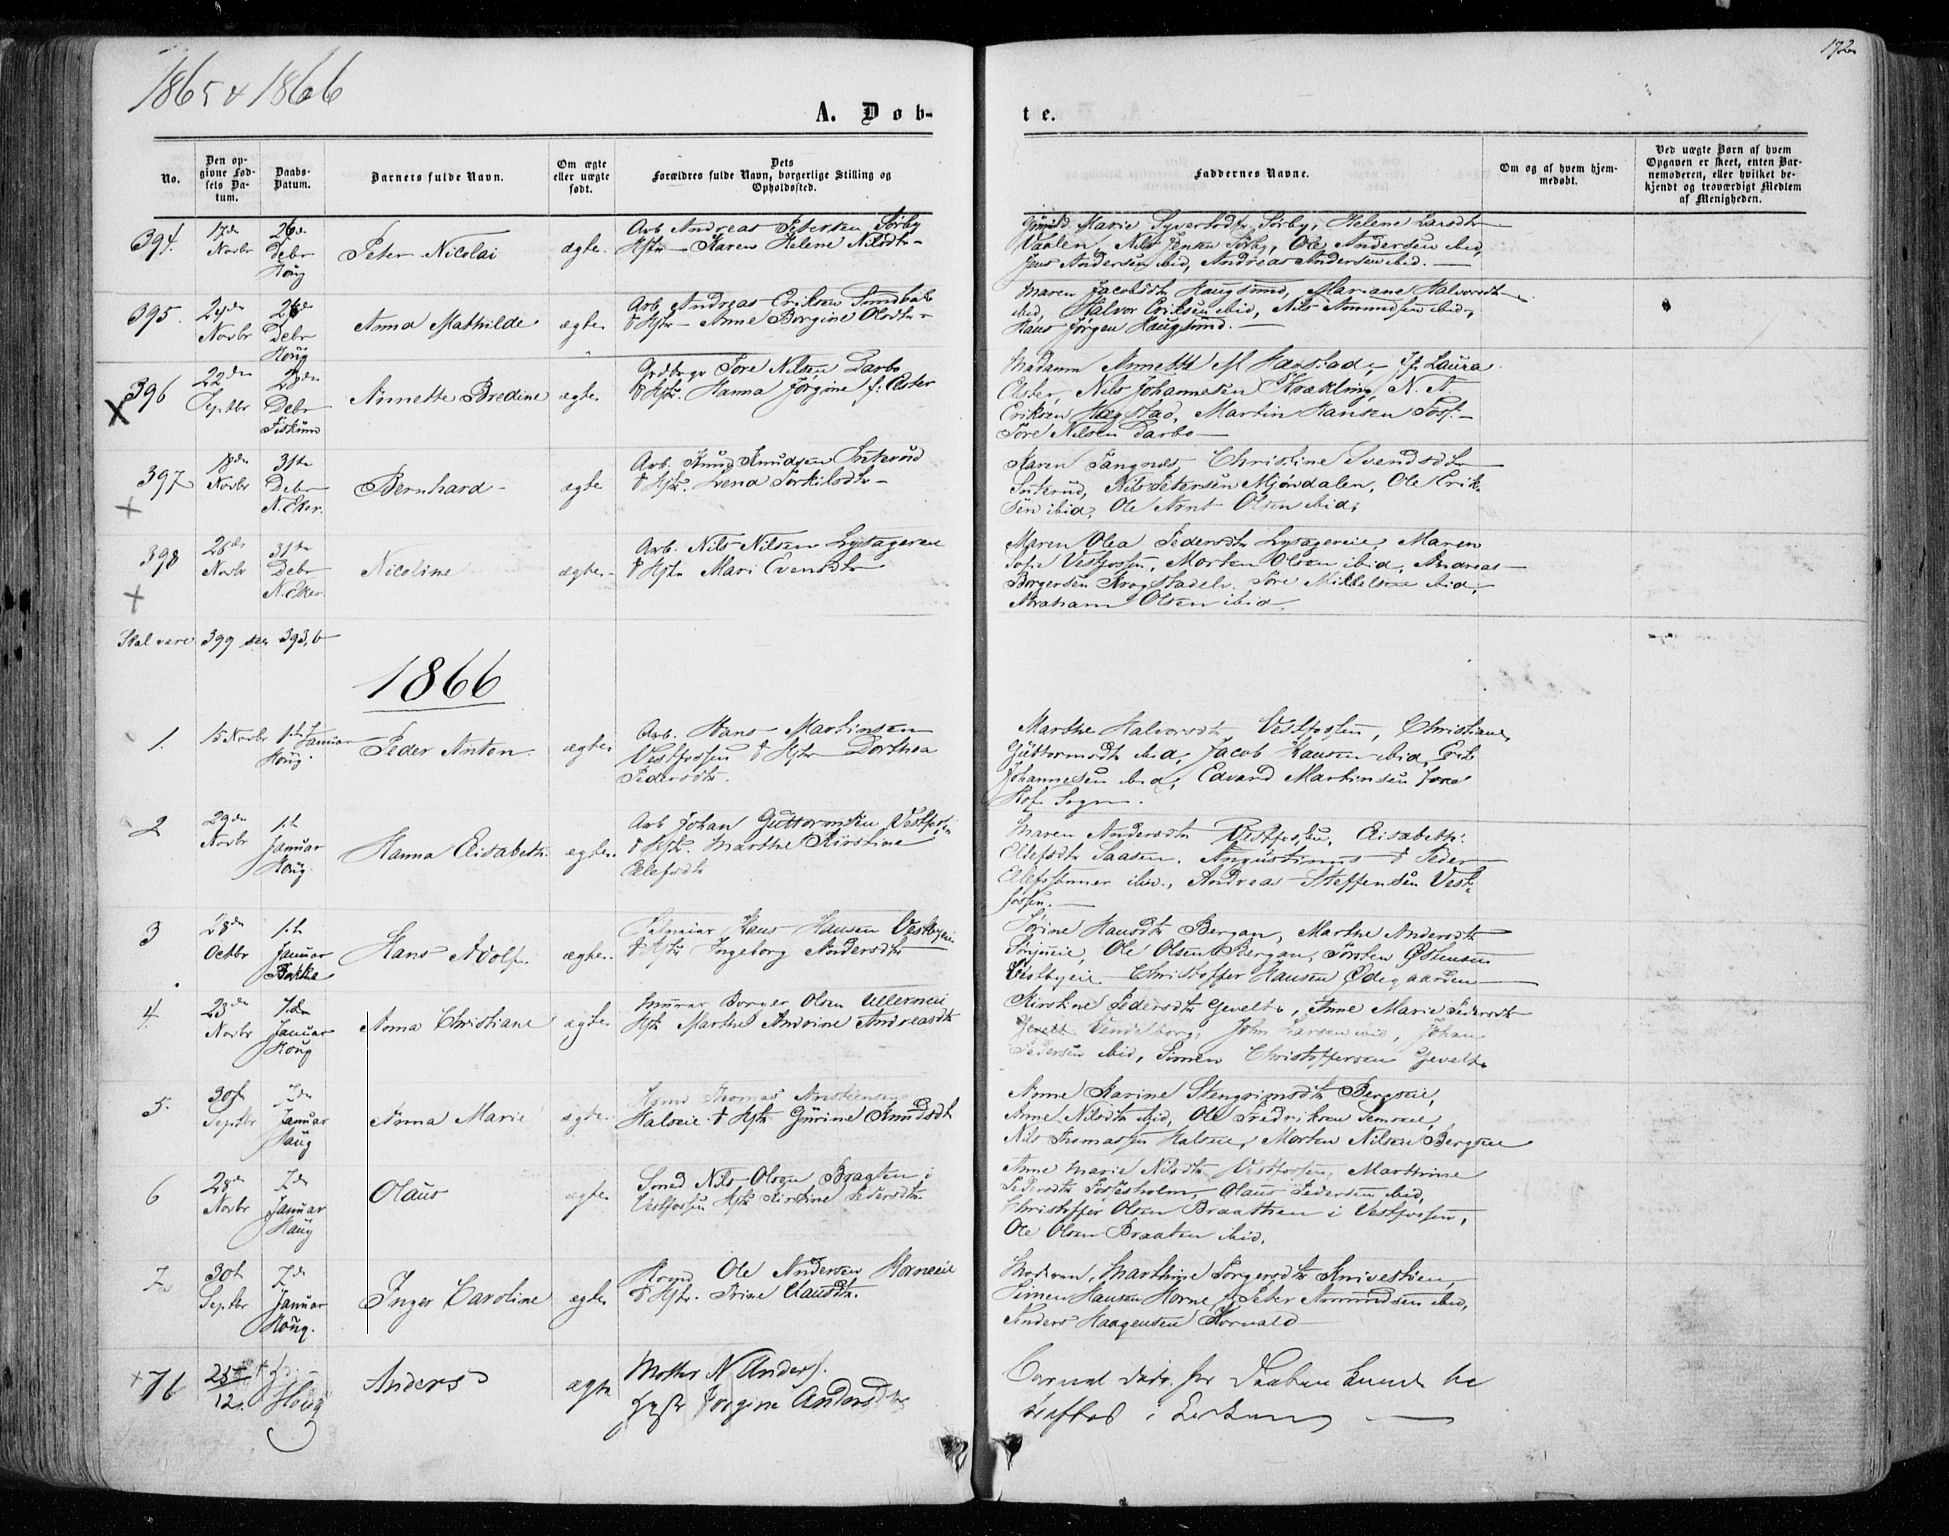 1865 & 1866
172
A. Døb-
te.
No.
Den op-
givne Fød-
sels Da-
tum.
Daabs-
Datum.
Barnets fulde Navn.
Om ægte
eller uægte
født.
Dets
Forældres fulde Navn, borgerlige Stilling og
Opholdssted.
Faddernes Navne.
Om og af hvem hjem-
medøbt.
Ved uægte Børn af hvem
Opgaven er skeet, enten Bar-
nemoderen, eller hvilket be-
kjendt og troværdigt Medlem
af Menigheden.
394.
17de
Novbr
26de
Debr
Houg
Peter Nicolai
ægte.
Arb Andreas Petersen Sørby
Hstr Karen Helene Nilsdtr
Marie Syversdtr Sørby, Helene Larsdtr
Vaalen, Nils Jensen Sørby, Ole Andersen ibid,
Jens Andersen ibid, Andreas Andersen ibid.
395.
Novbr
26de
Debr
Houg
Anna Mathilde
ægte
Arb Andreas Eriksen
& Hstr Anne Borgine Olsdtr
Maren Jacobsdtr Haugsund, Mariane Halvorsdtr
ibid, Halvor Eriksen ibid, Nils Amundsen ibid,
Hans Jørgen Haugsund.
396
22den
Septbr
Debr
Fiskum
Annette Bredine
ægte
Tore Nilsen Darbo
& Hstr. Hanna Jørgine f: Cester
Madamm Annette Harstad, Jfr Laura
Nils Johannesen Krækling, N. A
Eriksen Hægstad, Martin Hansen
Tore Nilsen Darbo
397
18de
Novbr
31te
Debr
N. Eker.
Bernhard
ægte
Arb. Knud Knudsen
& Hstr. Lena Torkilsdtr
Karen Tangnes, Christine Svendsdtr
Nils Petersen Mjøndalen, Ole Erik-
sen ibid, Ole Arnt Olsen ibid,
398
28de
Novbr
31te
Debr
N. Eker.
Nicoline
ægte
Arb. Nils Nilsen Lystagereie
& Hstr Mari Evensdtr
Maren Olea Pedersdtr Lystagereie, Maren
Sofie Vestfossen, Morten Olsen ibid, Andreas
Borgersen Krogstadelv. Tore Mikkelsen ibid,
Abraham Olsen ibid.
Skal være 399 393,b
1866
1.
15 Novbr
1ste Januar
Houg.
Peder Anton.
ægte
Arb. Hans Martinsen
Vestfossen & Hstr Dorthea
Pedersdtr.
Marthe Halvorsdtr Vestfossen, Christiane
Guttormsdtr ibid, Jacob Hansen ibid, Erik
Johannesen ibid, Edvard Martinsen
Hof Sogn.
2
29de
Novbr
1ste
Januar
Houg.
Hanna Elisabeth.
ægte.
Arb Johan Guttormsen Vestfossen
& Hstr. Marthe Kirstine
Ellefsdtr
Maren Andersdtr Vestfossen, Elisabeth
Ellefsdtr Saasen, Augustinus & Peder
Ellefsønner ibid., Andreas Steffensen Vest-
fossen.
3
28de
Octbr
1ste
Januar
Bakke
Hans Adolf.
ægte.
Hans Hansen Vestbyeie
& Hstr Ingeborg Andersdtr
Jørine Hansdtr Bergan, Marthe Andersdtr
Ole Olsen Bergan, Torsten Østensen
Vestbyeie Christoffer Hansen Ødegaarden
4
23de
Novbr
7de
Januar
Houg
Anna Christiane
ægte
Murer Borger Olsen Ullerneie
Hstr Marthe Andrine Andreasdtr
Kirstine Pedersdtr Gevelt, Anne Marie Pedersdtr
John Larsen ibid, Johan
Pedersen ibid, Simen Christoffersen Gevelt.
5.
30te
Septbr
7de
Januar
Haug
Anna Marie
ægte.
Husmd Thomas Kristiensen
Halseie & Hstr Gurine Knudsdtr
Anne Karine Stengrimsdtr Bergseie,
Anne Nilsdtr ibid, Ole Fredriksen Semseie,
Nils Thomassen Halseie, Morten Nilsen Bergseie
6
28de
Novbr
7de
Januar
Haug
Olaus
ægte
Smed Nils Olsen Braaten i
Vestfossen Hstr Kirstine Pedersdtr
Anne Marie Nilsdtr Vestfossen, Marthine
Pedersdtr Fossesholm, Olaus Pedersen ibid,
Christoffer Olsen Braathen i Vestfossen,
Ole Olsen Braaten ibid.
7
30te
Septbr
7de
Januar
Houg.
Inger Caroline
ægte
Husmd Ole Andersen Horneeie
& Hstr. Trine Clausdtr.
Moderen, Marthine Torgersdtr Knivestien,
Simen Hansen Horne, Peter Amundsen ibid,
Anders Haagensen Horvald
76
25
12.
Houg
Anders
ægte
N Anders.
Jørgine Andersdtr